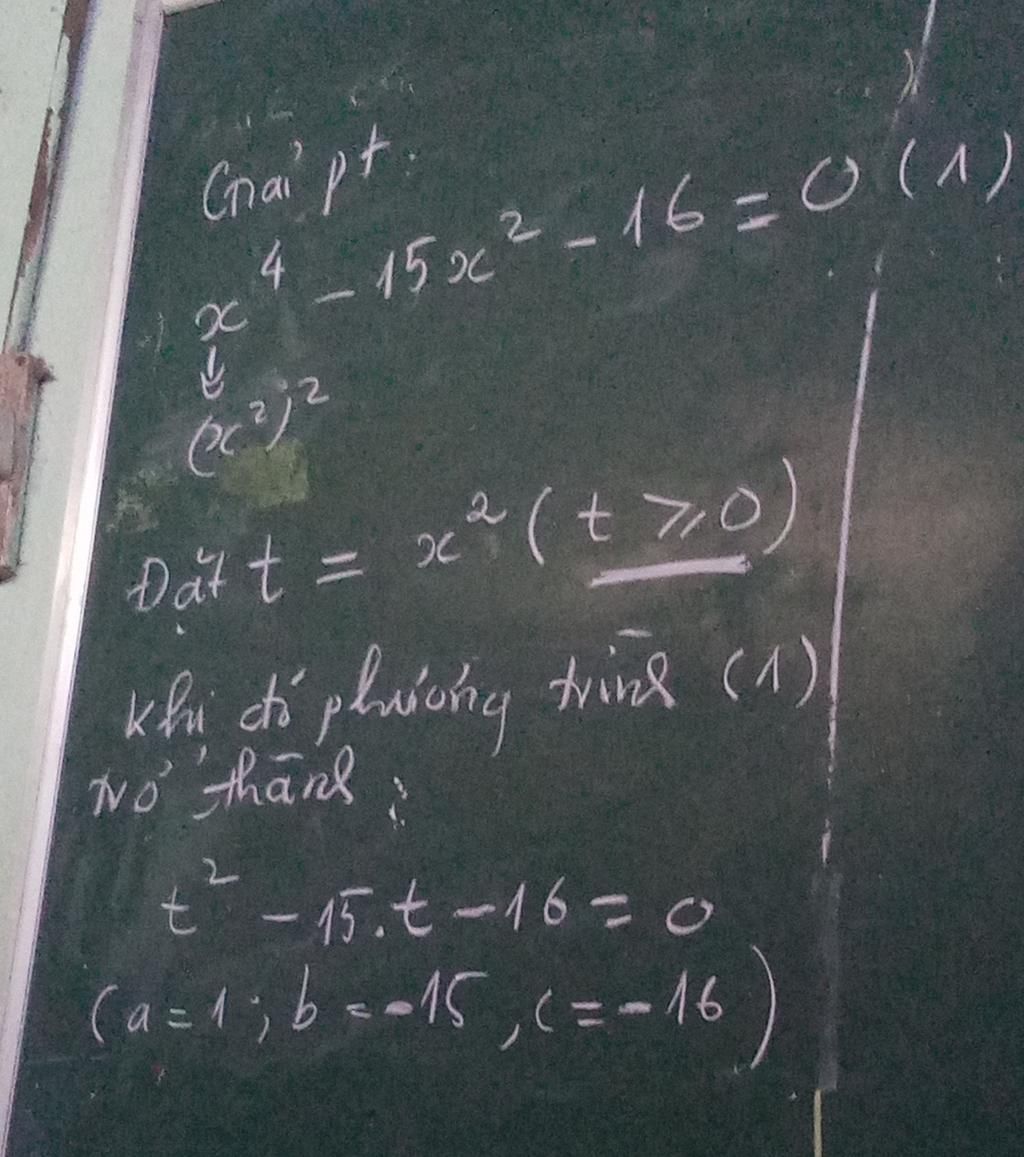 Giải pt:
x⁴ - 15x² - 16 = 0 (1)
↓
(x²)²
Đặt t = x² (t ⩾ 0)
Khi đó phương trình (1)
trở thành :
t² - 15.t - 16 = 0
(a = 1 ; b = -15 , c = -16)